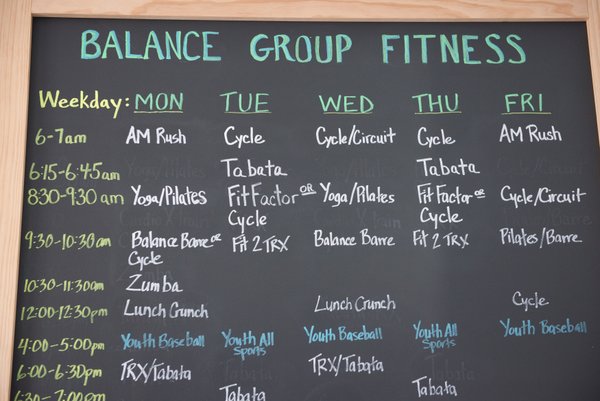 BALANCE GROUP FITNESS
Weekday: MON TUE WED THU FRI
6-7am AM Rush Cycle Cycle/Circuit Cycle AM Rush
6:15-6:45am Tabata Tabata
8:30-9:30am Yoga/Pilates FitFactor OR Yoga/Pilates Fit Factor OR Cycle/Circuit
Cycle Cycle
9:30-10:30am Balance Barre or Fit 2 TRX Balance Barre Fit 2 TRX Pilates/Barre
Cycle
10:30-11:30am Zumba
12:00-12:30pm Lunch Crunch Lunch Crunch Cycle
4:00-5:00pm Youth Baseball Youth All Youth Baseball Youth All Youth Baseball
Sports Sports
6:00-6:30pm TRX/Tabata TRX/Tabata
6:30-7:00pm Tabata Tabata